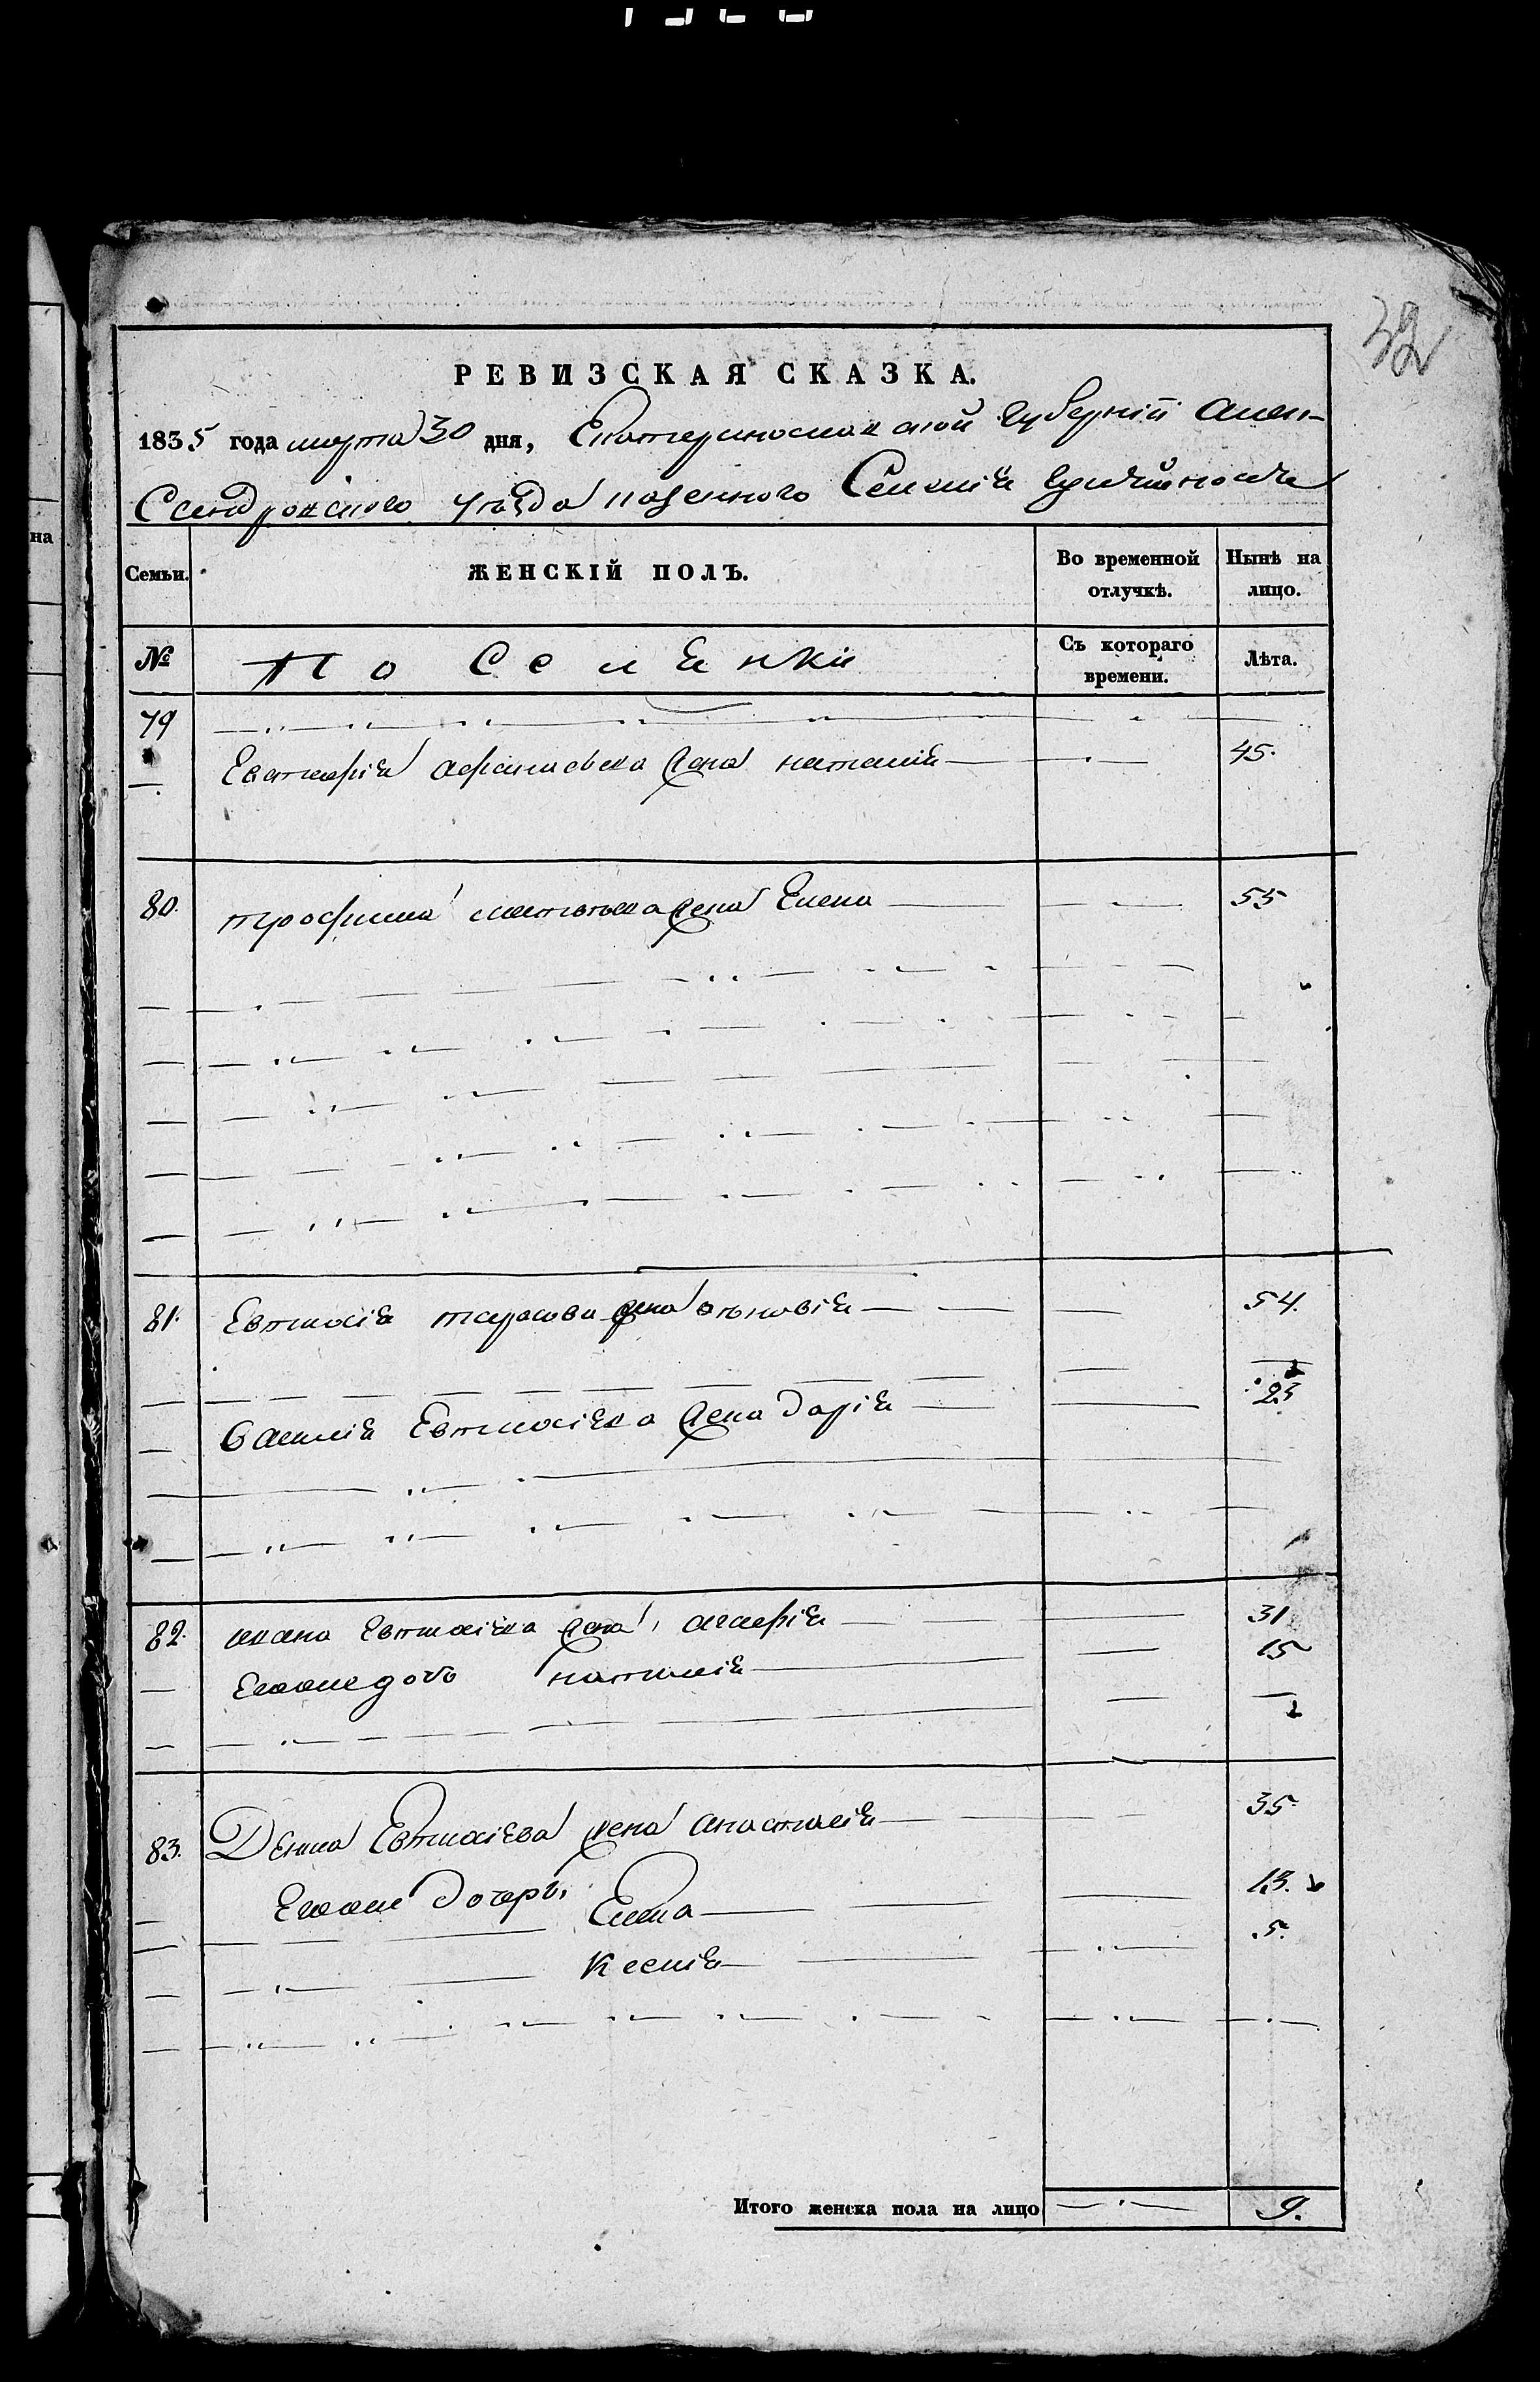 32
РЕВИЗСКАЯ СКАЗКА.
1835 года марта 30 дня, Екатеринославской губерніи Алек-
Сандровскаго уѣзда казенного Селенія
Семьи. ЖЕНСКІЙ ПОЛЪ. Во временной отлучкѣ. Нынѣ на лицо.
№ Поселенки Съ котораго времени. Лѣта.
на
79
Евстафія жена наталія 45.
80. трофима жена Елена 55
81. Евтихія тарасова жена 54.
Василія Евтихіева жена Дарія 23
82. ивана Евтихіева жена агафія 31
Его дочь наталія 15
83. Демида Евтихіева жена анастасія 35.
Дочери Елена 13.
Ксенія 5.
Итого женска пола на лицо 9.